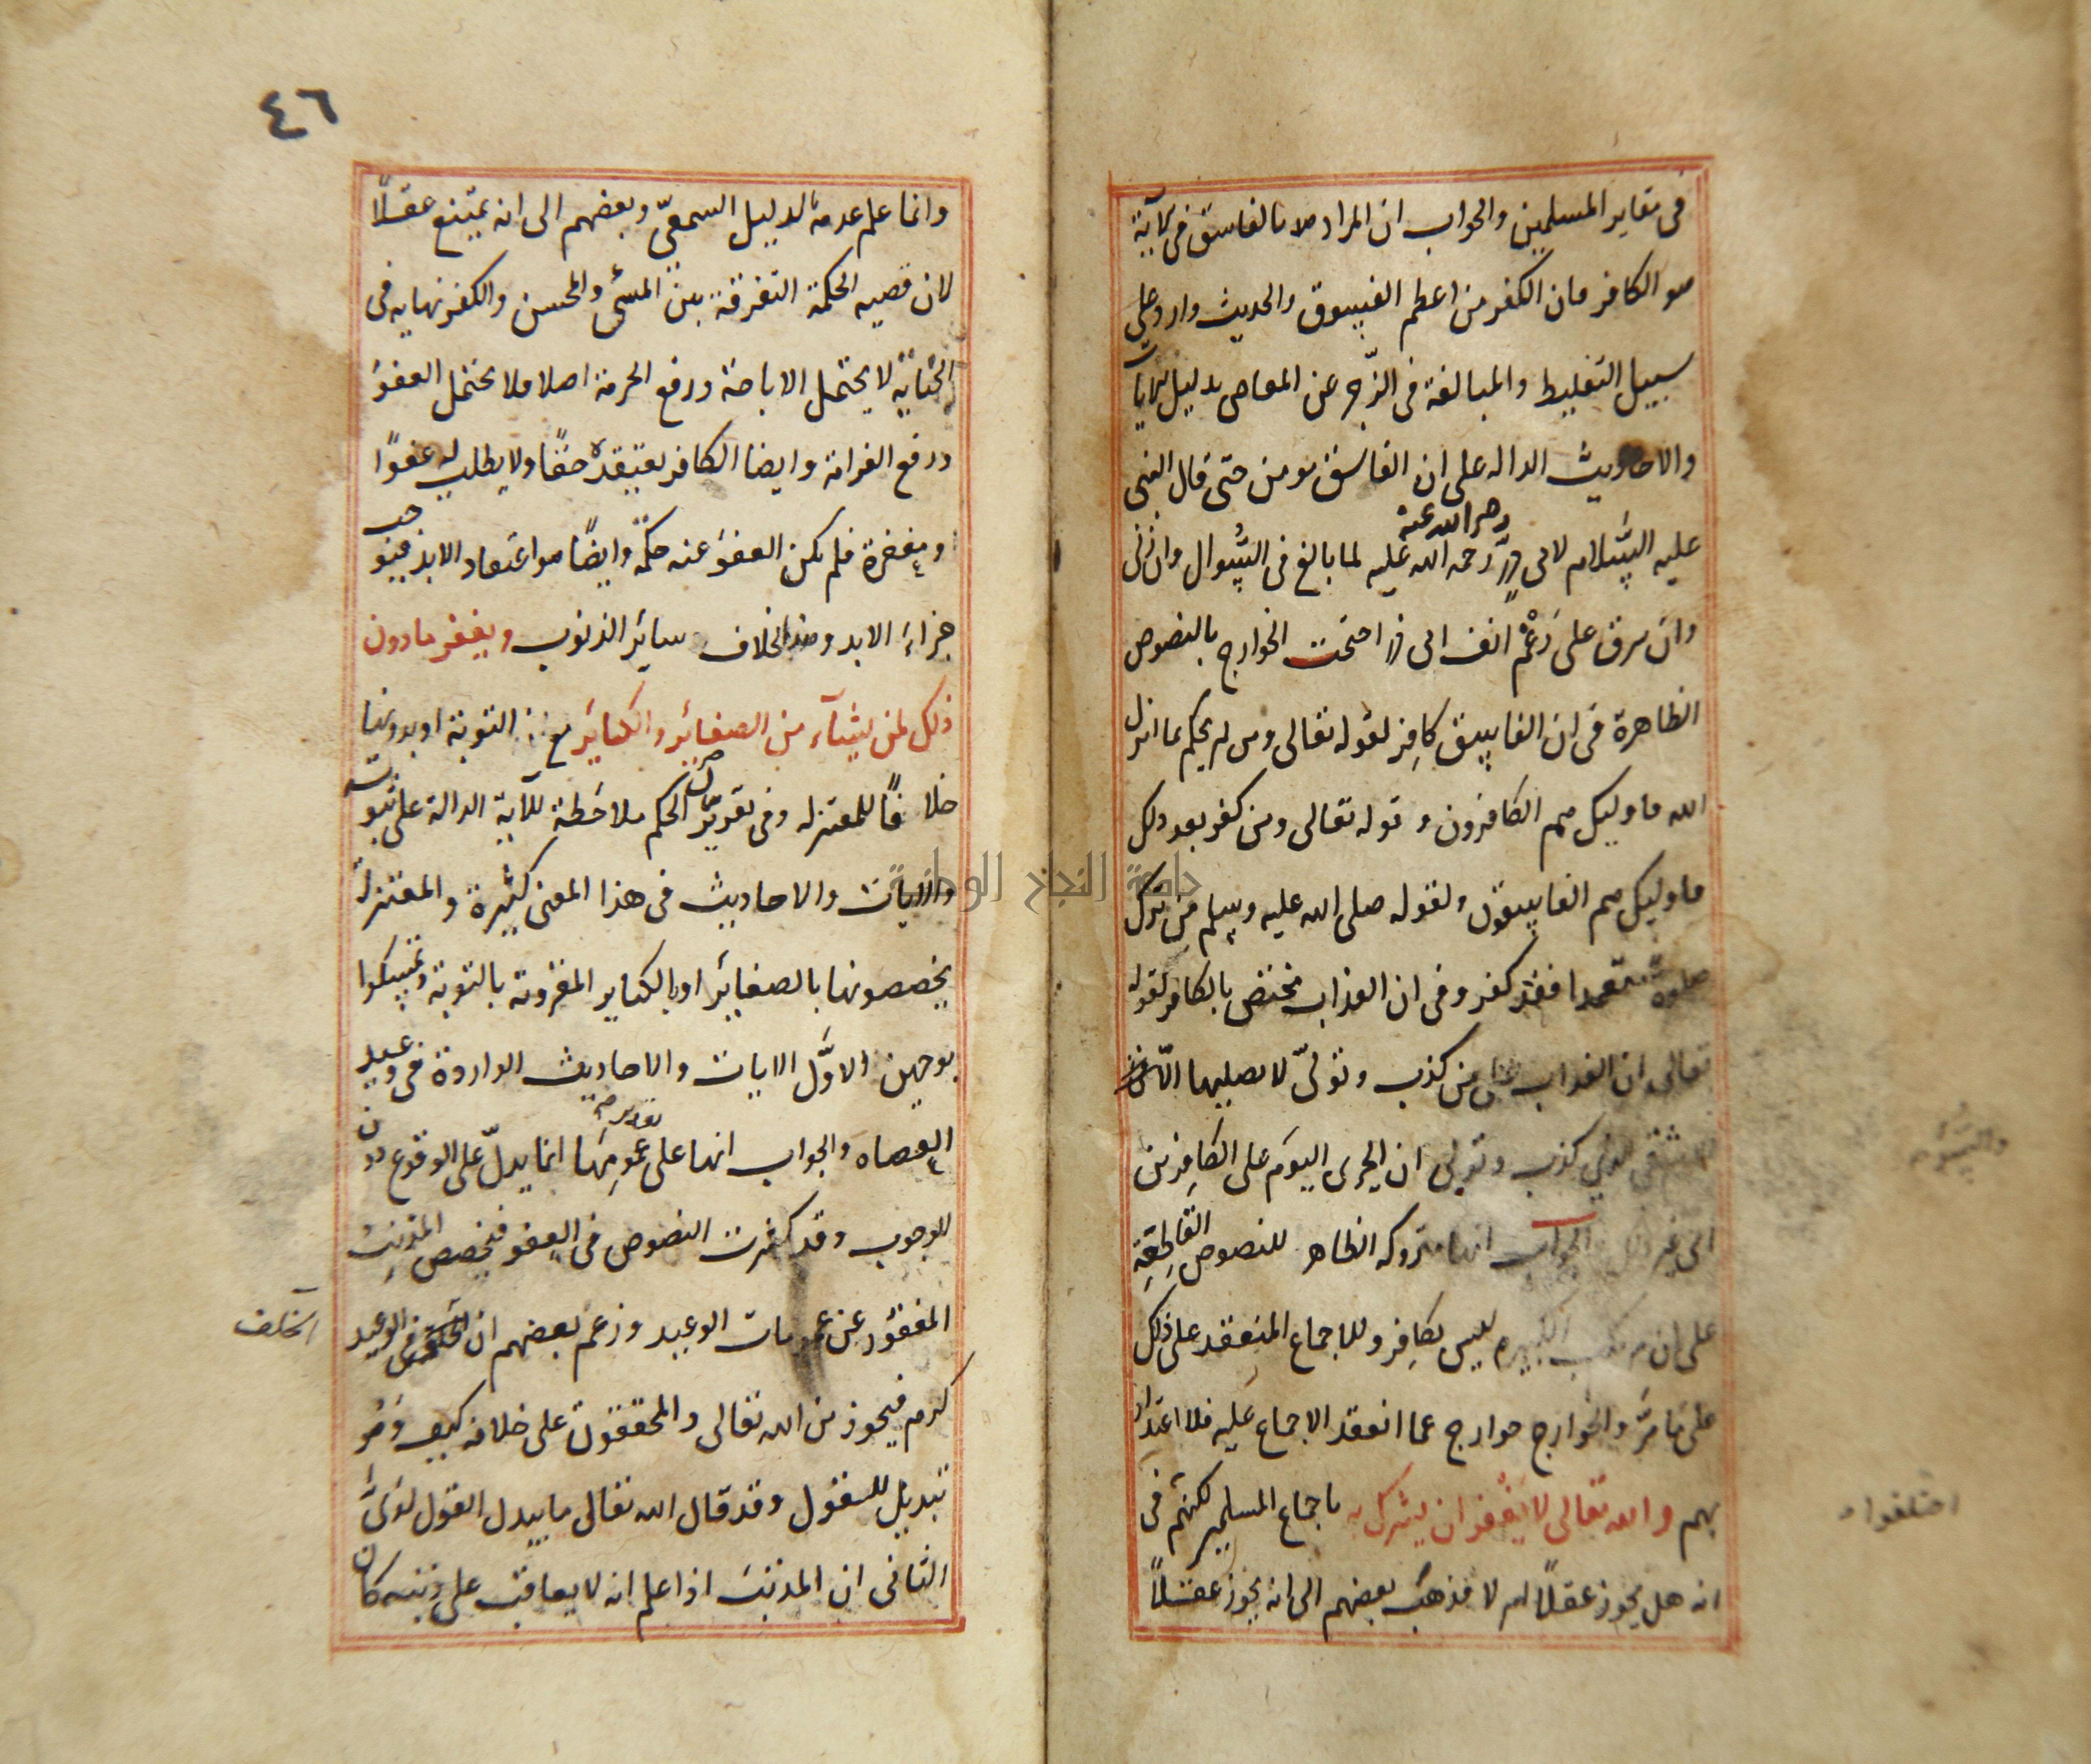 فى مقابر المسلمين والجواب ان المراد بالفاسق فى الآية
هو الكافر فان الكفر من اعظم الفسوق والحديث وارد على
سبيل التغليظ والمبالغة فى الزّجر عن المعاصى بدليل الايات
والاحاديث الداله على ان الفاسق مومن حتى قال النبى
عليه السّلام لابى ذرّ رحمه الله عليه لما بالغ فى السُّوال وان زنى
رضى الله عنه
وان سرق على رَغْم انف ابى ذر احتجت الخوارج بالنصوص
الظاهرة فى ان الفاسق كافِر لقوله تعالى ومن لم يحكم بما انزل
الله فاوليك هم الكافرون وقوله تعالى ومن كفر بعد ذلك
فاوليك هم الفاسقون ولقوله صلى الله عليه وسلم من ترك
صلوة متعمّدا فقد كفر وفى ان العذاب مختص بالكافر لقوله
تعالى ان العذاب على من كذب وتولىّ لا يصليها الاّ
الاشقى الذي كذب وتولى ان الخزى اليوَم على الكافِرين
الى غير ذلك والجواب انها متروكه الظاهر للنصوص القاطِعَةِ
على ان مرتكب الكبيره ليس بكافِر وللاجماع المنعقد على ذلك
على مَا مَرَّ والخَوَارج خوارج عما انعقد الاجماع عليه فلا اعتداد
بهم والله تعالى لا يَغْفر ان يشرك به باجماع المسلمين لكنهم فى
انه هل يجوز عقلاً ام لا فذهَب بعضهم الى انه يجوز عقلاً
والسُّوَّه
اختلفوا
٤٦
وانما علم عدمه بالدليل السمعىّ وبعضهم الى انه يمتنع عقلاً
لان قضيه الحكمة التفرقة بين المسئ والمحسن والكفر نهايه فى
الجنَايَةِ لا يحتمل الاباحة ورفع الحرمة اصلا فلا يحتمل العفوَ
ورفع الغرامة وايضا الكافر يعتقده حقًا ولا يطلب له عفوًا
ومغفرة فلم يكن العفوَ عنه حكمَةً وايضًا هو اعتقاد الابد فيوجب
جزاءَ الابد وهذا بخلاف سايَر الذنوب ويغفر ما دون
ذلك لمن يشَآء من الصغائر والكبائر مع التوبة او بدونها
خلافًا للمعتزله وفى تقرير الحكم ملاحَظة للآية الدالة على ثبوته
والايات والاحاديث فى هذا المعنى كثيرة والمعتزلة
يخصصونها بالصغايَر او بالكباير المقرونة بالتوبة وتمسكوا
بوجهين الاوَّل الايات والاحاديث الواردة فى وعيد
العصاه والجواب انها على تقدير عمومِهَا انما يدلّ على الوقوع دون
الوجوب وقد كثرت النصوص فى العفو فيخصص المذنِبُ
المغفوُر عن عمومات الوعيد وزعمَ بعضهم ان الخلف فى الوعيد
الخَلف
كرم فيجوز من الله تعالى والمحققوُن على خلافه كيف وَهُو
تبديل للقول وقد قال الله تعالى ما يبدل القول لدَىَّ
الثانى ان المذنبَ اذا علم انه لا يعاقب على ذنبه كان
جامعة النجاح الوطنية